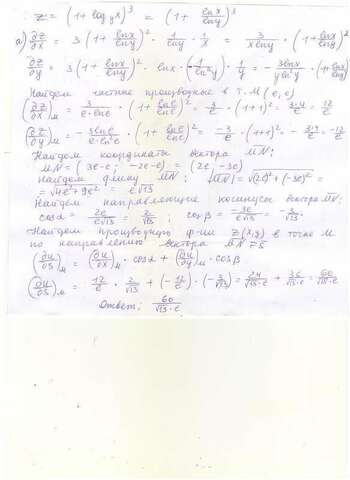 z = (1 + log_y x)^3 = (1 + lnx/lny)^3
а) ∂z/∂x = 3(1 + lnx/lny)^2 · 1/lny · 1/x = 3/(xlny) · (1 + lnx/lny)^2
∂z/∂y = 3(1 + lnx/lny)^2 · lnx · (-1/ln²y) · 1/y = - 3lnx/(yln²y) · (1+lnx/lny)^2
Найдем частные производные в т. M(e, e)
(∂z/∂x)_M = 3/(e·lne) · (1 + lne/lne)^2 = 3/e · (1+1)^2 = 3·4/e = 12/e
(∂z/∂y)_M = - 3lne/(e·ln²e) · (1 + lne/lne)^2 = -3/e · (1+1)^2 = - 3·4/e = -12/e
Найдем координаты вектора MN:
MN = (3e-e; -2e-e) = (2e; -3e)
Найдем длину MN: |MN| = √((2e)² + (-3e)²) =
= √(4e²+9e²) = e√13
Найдем направляющие косинусы вектора MN:
cosα = 2e/(e√13) = 2/√13 ; cosβ = -3e/(e√13) = -3/√13
Найдем производную ф-ии z(x,y) в точке M
по направлению вектора MN
(∂u/∂s)_M = (∂u/∂x)_M · cosα + (∂u/∂y)_M · cosβ
(∂u/∂s)_M = 12/e · 2/√13 + (-12/e) · (-3/√13) = 24/(√13·e) + 36/(√13·e) = 60/(√13·e)
Ответ: 60/(√13·e)